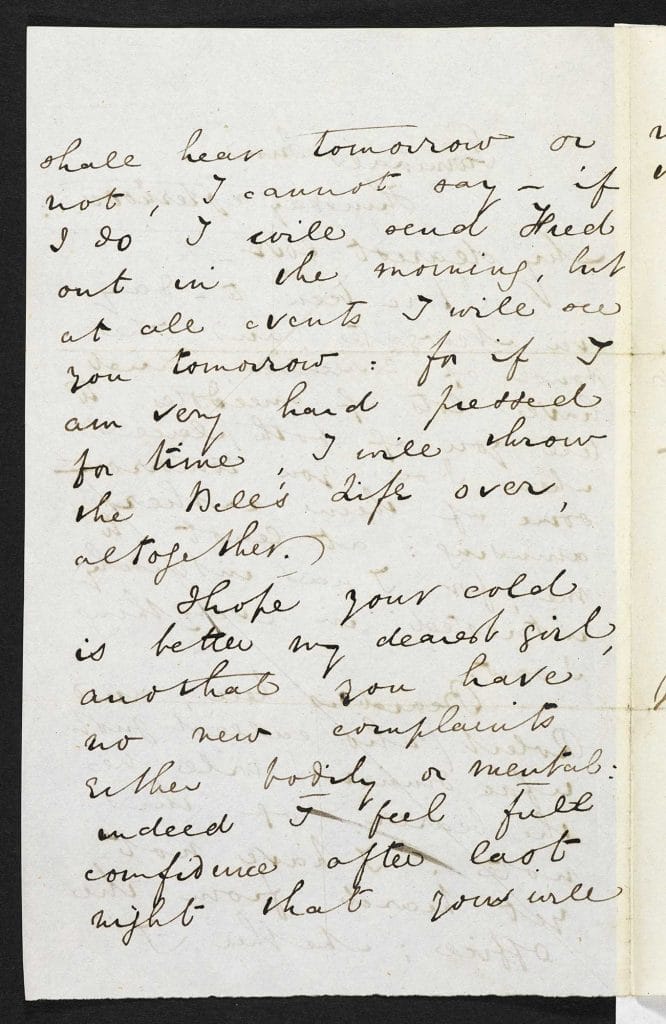 shall hear tomorrow or
not, I cannot say – if
I do I will send Fred
out in the morning, but
at all events I will see
you tomorrow: for if I
am very hard pressed
for time, I will throw
the Bell's Life over,
altogether.
I hope your cold
is better my dearest girl,
and that you have
no new complaints
either bodily or mental:
indeed I feel full
confidence after last
night that you will